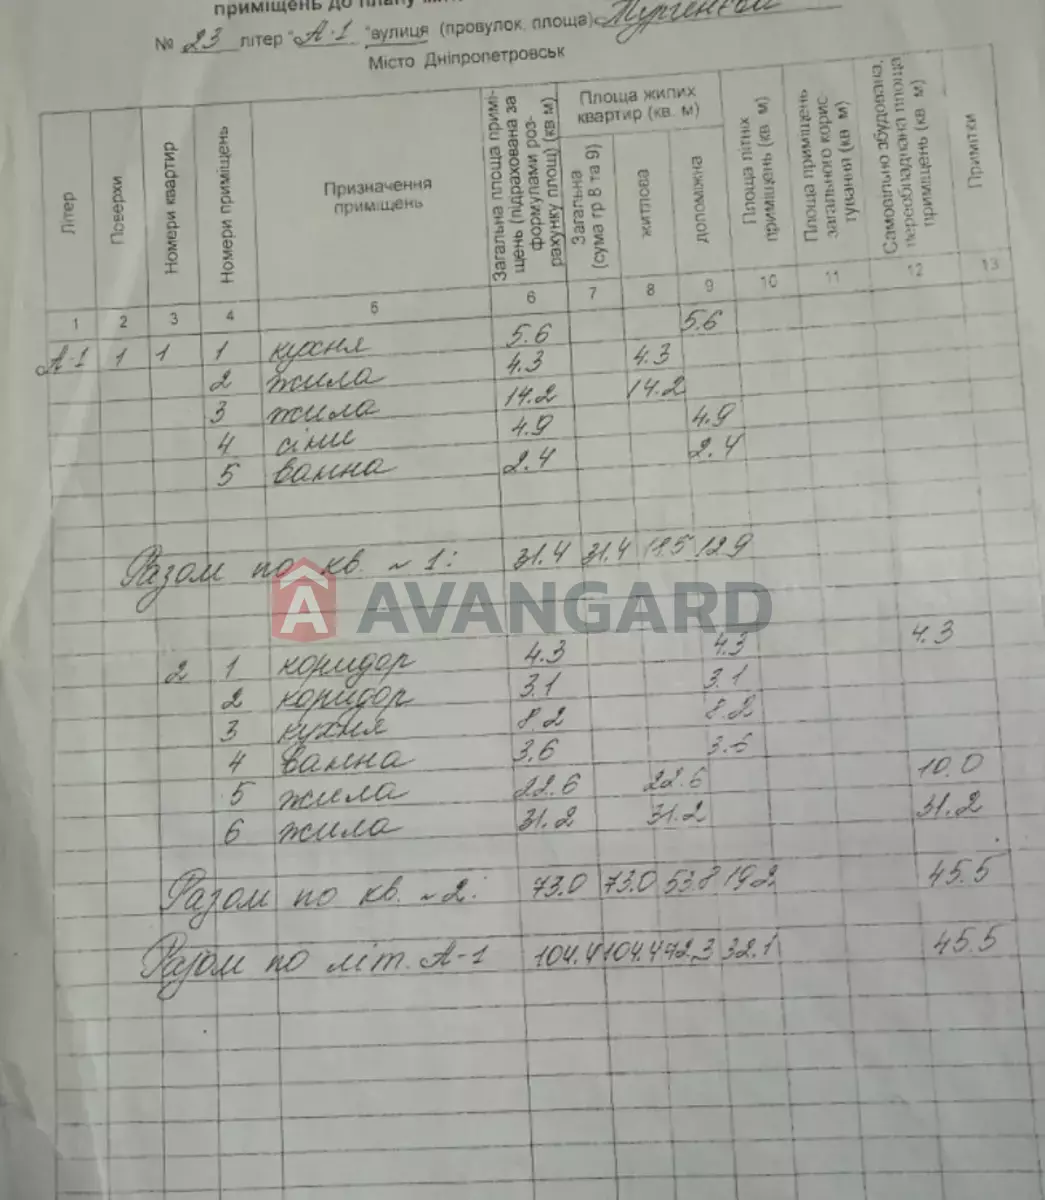 приміщень до плану
№ 23 літер "А-1" вулиця (провулок, площа)
Місто Дніпропетровськ
Літер
Поверхи
Номери квартир
Номери приміщень
Призначення приміщень
Загальна площа примі-
щень (підрахована за
формулами роз-
рахунку площ) (кв м)
Площа жилих
квартир (кв. м)
Загальна
(сума гр 8 та 9)
житлова
допоміжна
Площа літніх
приміщень (кв м)
Площа приміщень
загального корис-
тування (кв м)
Самовільно збудована,
переобладнана площа
приміщень (кв м)
Примітки
1 2 3 4 5 6 7 8 9 10 11 12 13
А-1 1 1 1 кухня 5.6 5.6
2 жила 4.3 4.3
3 жила 14.2 14.2
4 сіни 4.9 4.9
5 ванна 2.4 2.4
Разом по кв. ~1: 31.4 31.4 18.5 12.9
AVANGARD
2 1 коридор 4.3 4.3 4.3
2 коридор 3.1 3.1
3 кухня 8.2 8.2
4 ванна 3.6 3.6
5 жила 22.6 22.6 10.0
6 жила 31.2 31.2 31.2
Разом по кв. ~2: 73.0 73.0 53.8 19.2 45.5
Разом по літ. А-1 104.4 104.4 72.3 32.1 45.5